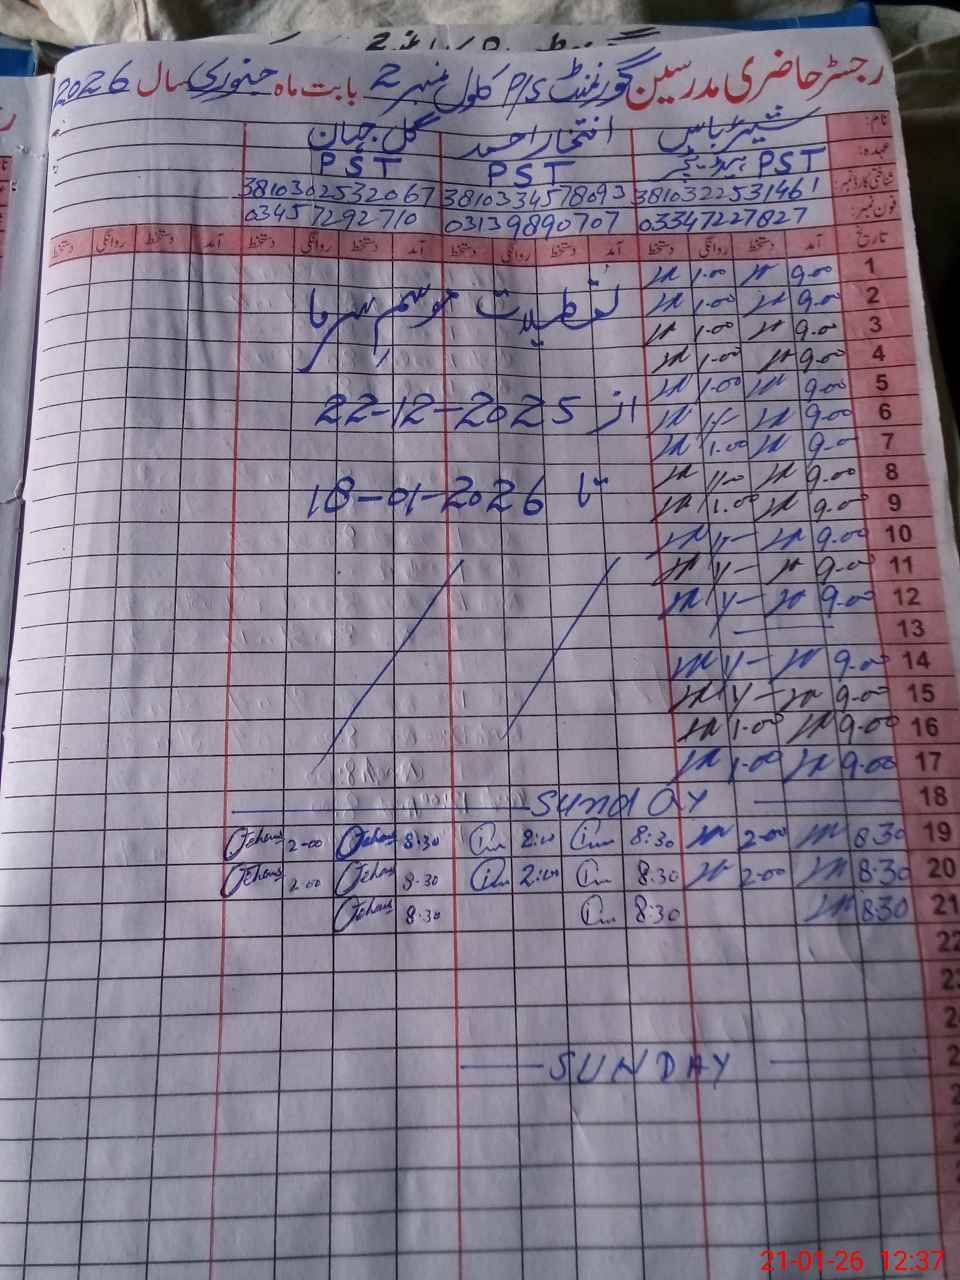 رجسٹر حاضری مدرسین گورنمنٹ P/S کلول نمبر 2 بابت ماہ جنوری سال 2026
نام: شیراباس افتخار احمد گل جہان
عہدہ: PST PST PST
شناختی کارڈ نمبر: 3810322531461 3810334578093 3810302532067
فون نمبر: 03347227827 03139890707 03457292710
تاریخ آمد دستخط روانگی دستخط آمد دستخط روانگی دستخط آمد دستخط روانگی دستخط آمد دستخط روانگی دستخط
1 9.00 1.00
2 9.00 1.00
3 9.00 1.00
4 9.00 1.00
5 9.00 1.00
6 9.00 1/-
7 9.00 1.00
8 9.00 1.00
9 9.00 1.00
10 9.00 1/-
11 9.00 1/-
12 9.00 1/-
13
14 9.00 1/-
15 9.00 1/-
16 9.00 1.00
17 9.00 1.00
تعطیلات موسم سرما
از 22-12-2025
تا 18-01-2026
18 Sunday
19 8.30 2.00 8:30 2:00 Jehan 8.30 Jehan 2.00
20 8.30 2.00 8:30 2:00 Jehan 8.30 Jehan 2.00
21 8.30 8:30 Jehan 8.30
22
SUNDAY
21-01-26 12:37